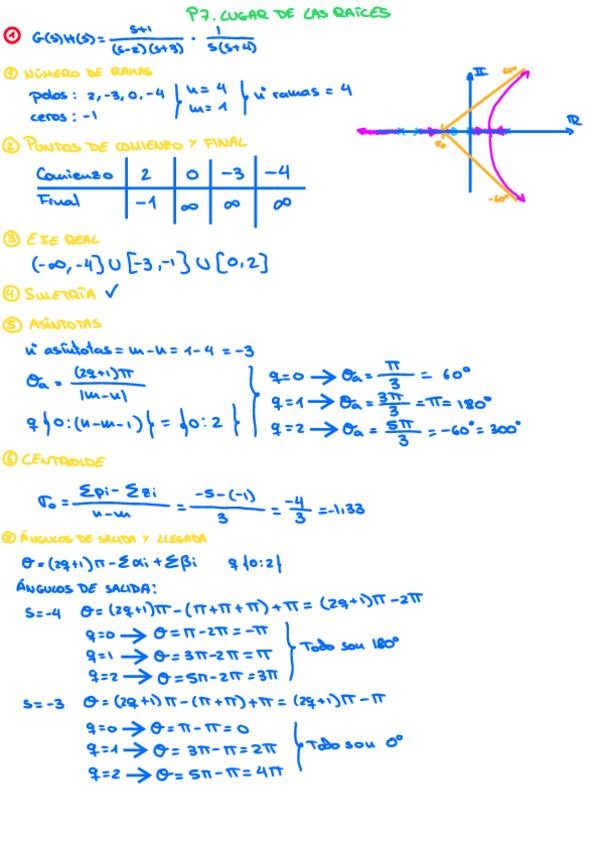 P7. LUGAR DE LAS RAÍCES
① G(s)H(s) = (s+1)/((s-2)(s+3)) · 1/(s(s+4))
① NÚMERO DE RAMAS
polos: 2, -3, 0, -4 } n = 4 } nº ramas = 4
ceros: -1 } m = 1
② PUNTOS DE COMIENZO Y FINAL
Comienzo | 2 | 0 | -3 | -4
Final | -1 | ∞ | ∞ | ∞
II
60º
R
σ0
-60º
③ EJE REAL
(-∞, -4] ∪ [-3, -1] ∪ [0, 2]
④ SIMETRÍA ✓
⑤ ASÍNTOTAS
nº asíntotas = m-n = 1-4 = -3
θa = (2q+1)π / |m-n|
q {0:(n-m-1)} = {0:2}
q=0 → θa = π/3 = 60º
q=1 → θa = 3π/3 = π = 180º
q=2 → θa = 5π/3 = -60º = 300º
⑥ CENTROIDE
σ0 = (Σpi - Σzi)/(n-m) = (-5-(-1))/3 = -4/3 = -1,33
⑧ ÁNGULOS DE SALIDA Y LLEGADA
θ = (2q+1)π - Σαi + Σβi q {0:2}
ÁNGULOS DE SALIDA:
s=-4 θ = (2q+1)π - (π+π+π) + π = (2q+1)π - 2π
q=0 → θ = π - 2π = -π
q=1 → θ = 3π - 2π = π } Todo son 180º
q=2 → θ = 5π - 2π = 3π
s=-3 θ = (2q+1)π - (π+π) + π = (2q+1)π - π
q=0 → θ = π - π = 0
q=1 → θ = 3π - π = 2π } Todo son 0º
q=2 → θ = 5π - π = 4π